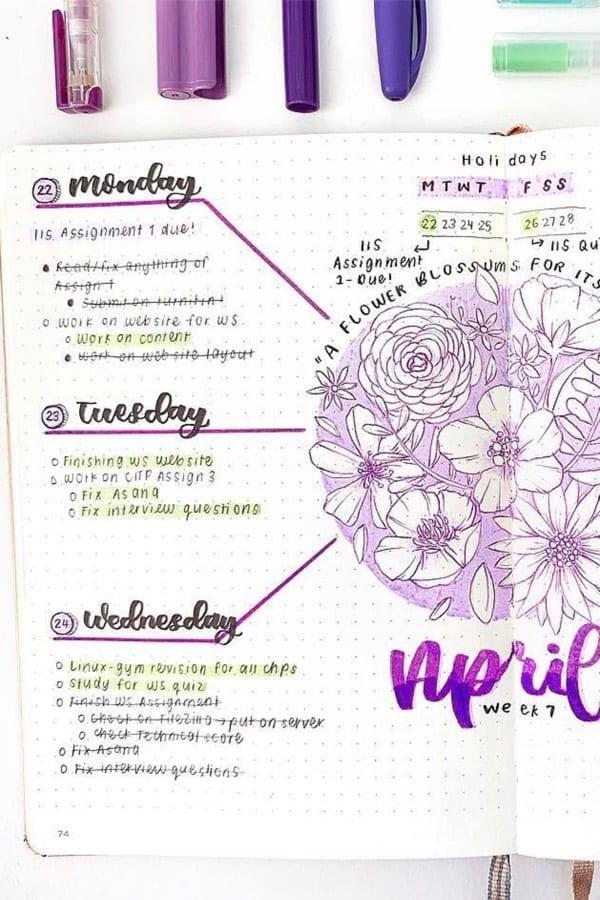 Holidays
MTWT FSS
22 23 24 25 26 27 28
IIS
Assignment
1 - Due!
→ IIS Qu
"A FLOWER BLOSSUMS FOR ITS
22 monday
IIS Assignment 1 due!
Read/fix anything of
Assign 1
Submit on turnitin!
Work on website for WS
Work on content
Work on website layout
23 Tuesday
Finishing WS website
Work on CITP Assign 3
Fix Asana
Fix interview questions
24 Wednesday
Linux-gym revision for all chps
Study for WS quiz
Finish WS Assignment
Check on Filezilla → put on server
Check Technical score
Fix Asana
Fix interview questions
April
Week 7
74